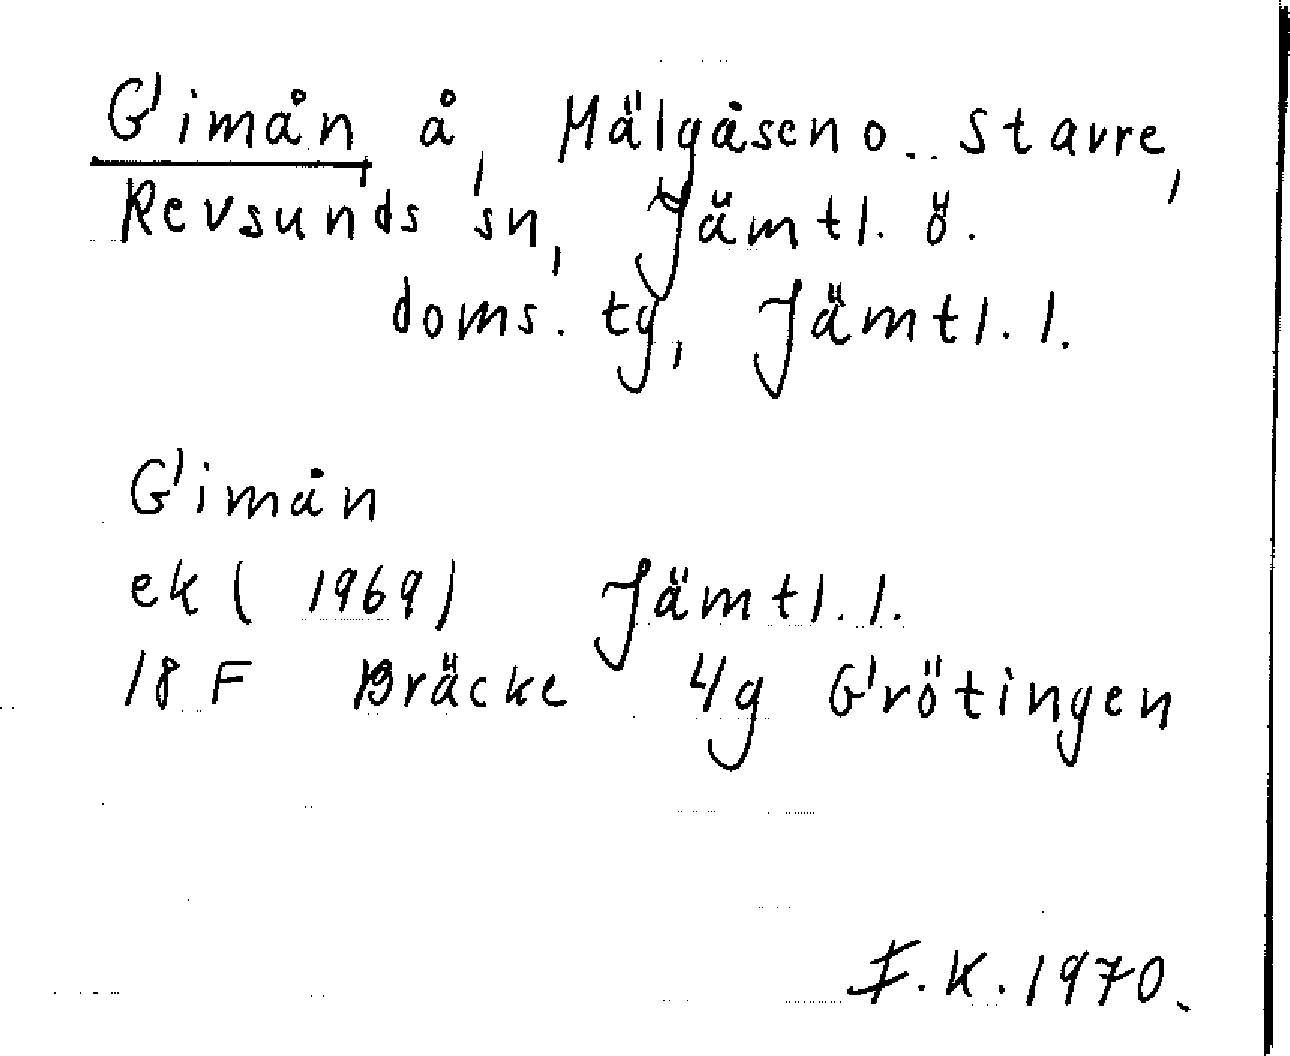 Gimån, å, Mälgåsen o. Stavre,
Revsunds sn, Jämtl. ö.
doms. tg, Jämtl. l.
Gimån
ek (1969) Jämtl. l.
18 F Bräcke 4g Grötingen
F.K. 1970.